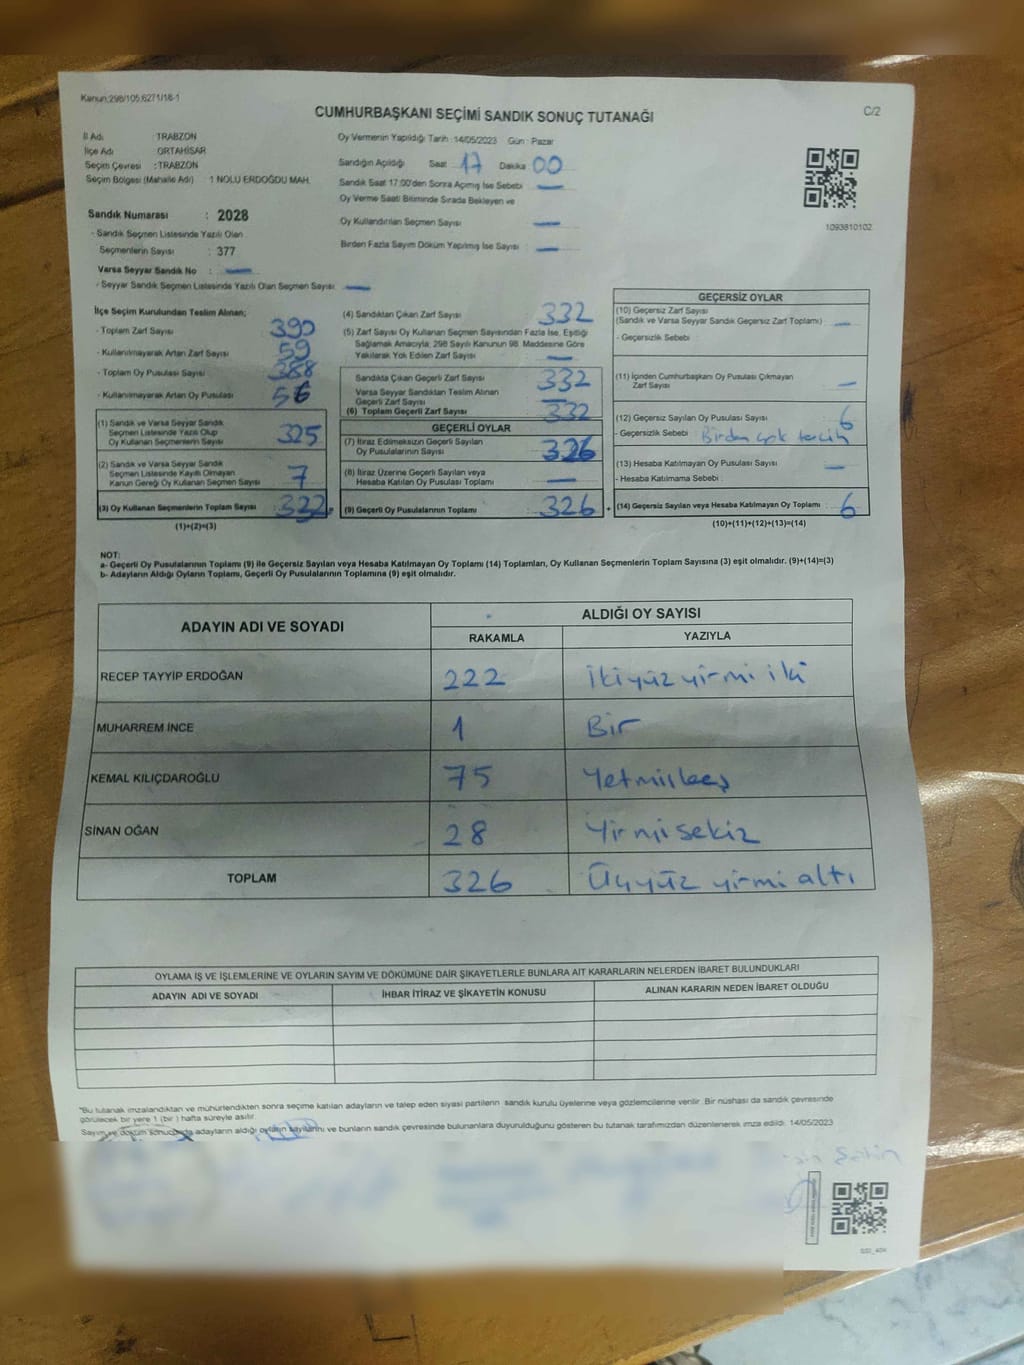 Kanun:298/105,6271/18-1
C/2
CUMHURBAŞKANI SEÇİMİ SANDIK SONUÇ TUTANAĞI
İl Adı : TRABZON
İlçe Adı : ORTAHİSAR
Seçim Çevresi : TRABZON
Seçim Bölgesi (Mahalle Adı) 1 NOLU ERDOĞDU MAH.
Sandık Numarası : 2028
- Sandık Seçmen Listesinde Yazılı Olan
Seçmenlerin Sayısı : 377
Varsa Seyyar Sandık No : —
- Seyyar Sandık Seçmen Listesinde Yazılı Olan Seçmen Sayısı : —
Oy Vermenin Yapıldığı Tarih : 14/05/2023 Gün : Pazar
Sandığın Açıldığı Saat 17 Dakika 00
Sandık Saat 17:00'den Sonra Açımış İse Sebebi —
Oy Verme Saati Bitiminde Sırada Bekleyen ve
Oy Kullandırılan Seçmen Sayısı —
Birden Fazla Sayım Döküm Yapılmış İse Sayısı —
1093810102
İlçe Seçim Kurulundan Teslim Alınan;
- Toplam Zarf Sayısı : 390
- Kullanılmayarak Artan Zarf Sayısı : 59
- Toplam Oy Pusulası Sayısı : 388
- Kullanılmayarak Artan Oy Pusulası : 56
(1) Sandık ve Varsa Seyyar Sandık
Seçmen Listesinde Yazılı Olup
Oy Kullanan Seçmenlerin Sayısı : 325
(2) Sandık ve Varsa Seyyar Sandık
Seçmen Listesinde Kayıtlı Olmayan
Kanun Gereği Oy Kullanan Seçmen Sayısı : 7
(3) Oy Kullanan Seçmenlerin Toplam Sayısı :
(1)+(2)=(3)
(4) Sandıktan Çıkan Zarf Sayısı : 332
(5) Zarf Sayısı Oy Kullanan Seçmen Sayısından Fazla İse, Eşitliği
Sağlamak Amacıyla; 298 Sayılı Kanunun 98. Maddesine Göre
Yakılarak Yok Edilen Zarf Sayısı : —
Sandıkta Çıkan Geçerli Zarf Sayısı : 332
Varsa Seyyar Sandıktan Teslim Alınan
Geçerli Zarf Sayısı : —
(6) Toplam Geçerli Zarf Sayısı : 332
GEÇERLİ OYLAR
(7) İtiraz Edilmeksizin Geçerli Sayılan
Oy Pusulalarının Sayısı : 326
(8) İtiraz Üzerine Geçerli Sayılan veya
Hesaba Katılan Oy Pusulası Toplamı : —
(9) Geçerli Oy Pusulalarının Toplamı : 326 +
GEÇERSİZ OYLAR
(10) Geçersiz Zarf Sayısı
(Sandık ve Varsa Seyyar Sandık Geçersiz Zarf Toplamı) : —
- Geçersizlik Sebebi :
(11) İçinden Cumhurbaşkanı Oy Pusulası Çıkmayan
Zarf Sayısı : —
(12) Geçersiz Sayılan Oy Pusulası Sayısı : 6
- Geçersizlik Sebebi : Birden çok tercih
(13) Hesaba Katılmayan Oy Pusulası Sayısı : —
- Hesaba Katılmama Sebebi :
(14) Geçersiz Sayılan veya Hesaba Katılmayan Oy Toplamı : 6
(10)+(11)+(12)+(13)=(14)
NOT:
a- Geçerli Oy Pusulalarının Toplamı (9) ile Geçersiz Sayılan veya Hesaba Katılmayan Oy Toplamı (14) Toplamları, Oy Kullanan Seçmenlerin Toplam Sayısına (3) eşit olmalıdır. (9)+(14)=(3)
b- Adayların Aldığı Oyların Toplamı, Geçerli Oy Pusulalarının Toplamına (9) eşit olmalıdır.
ADAYIN ADI VE SOYADI
ALDIĞI OY SAYISI
RAKAMLA YAZIYLA
RECEP TAYYİP ERDOĞAN 222 İkiyüzyirmi iki
MUHARREM İNCE 1 Bir
KEMAL KILIÇDAROĞLU 75 Yetmişbeş
SİNAN OĞAN 28 Yirmisekiz
TOPLAM 326 Üçyüz yirmi altı
OYLAMA İŞ VE İŞLEMLERİNE VE OYLARIN SAYIM VE DÖKÜMÜNE DAİR ŞİKAYETLERLE BUNLARA AİT KARARLARIN NELERDEN İBARET BULUNDUKLARI
ADAYIN ADI VE SOYADI İHBAR İTİRAZ VE ŞİKAYETİN KONUSU ALINAN KARARIN NEDEN İBARET OLDUĞU
*Bu tutanak imzalandıktan ve mühürlendikten sonra seçime katılan adayların ve talep eden siyasi partilerin sandık kurulu üyelerine veya gözlemcilerine verilir. Bir nüshası da sandık çevresinde
görülecek bir yere 1 (bir ) hafta süreyle asılır.
Sayım ve döküm sonucunda adayların aldığı oyların sayılarını ve bunların sandık çevresinde bulunanlara duyurulduğunu gösteren bu tutanak tarafımızdan düzenlenerek imza edildi. 14/05/2023